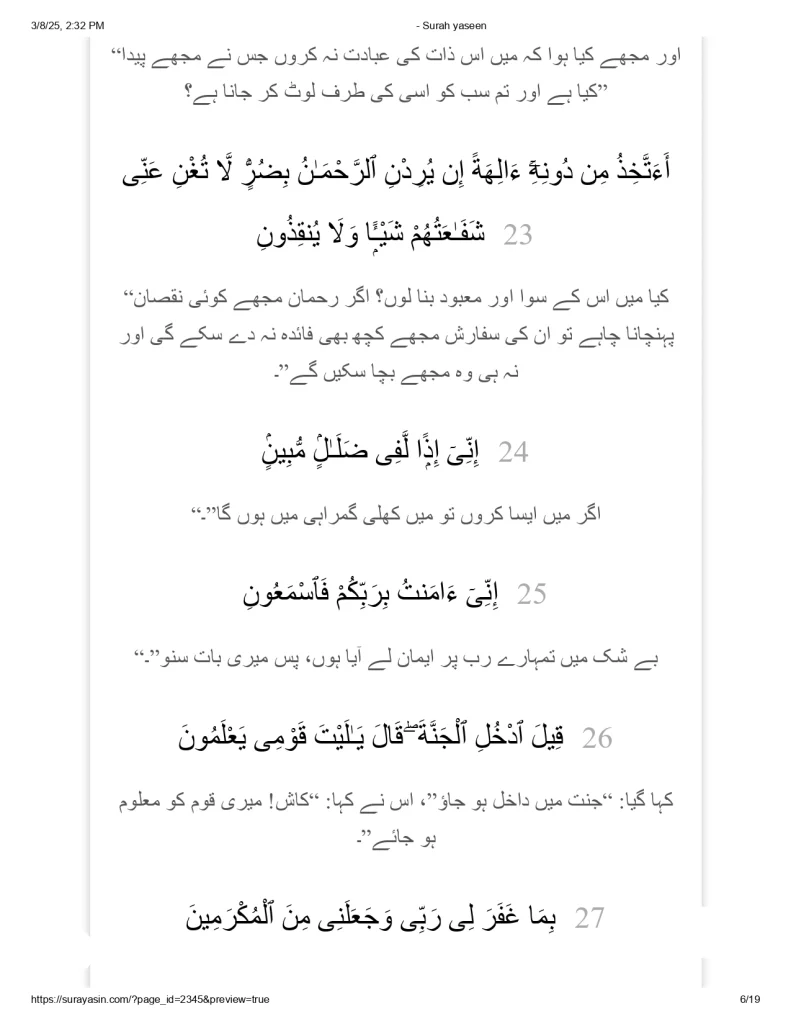 3/8/25, 2:32 PM - Surah yaseen
اور مجھے کیا ہوا کہ میں اس ذات کی عبادت نہ کروں جس نے مجھے پیدا“
”کیا ہے اور تم سب کو اسی کی طرف لوٹ کر جانا ہے؟
أَءَتَّخِذُ مِن دُونِهِۦٓ ءَالِهَةً إِن يُرِدْنِ ٱلرَّحْمَـٰنُ بِضُرٍّۢ لَّا تُغْنِ عَنِّى
شَفَـٰعَتُهُمْ شَيْـًۭٔا وَلَا يُنقِذُونِ 23
کیا میں اس کے سوا اور معبود بنا لوں؟ اگر رحمان مجھے کوئی نقصان“
پہنچانا چاہے تو ان کی سفارش مجھے کچھ بھی فائدہ نہ دے سکے گی اور
نہ ہی وہ مجھے بچا سکیں گے”۔
إِنِّىٓ إِذًۭا لَّفِى ضَلَـٰلٍۢ مُّبِينٍ 24
اگر میں ایسا کروں تو میں کھلی گمراہی میں ہوں گا”۔“
إِنِّىٓ ءَامَنتُ بِرَبِّكُمْ فَٱسْمَعُونِ 25
بے شک میں تمہارے رب پر ایمان لے آیا ہوں، پس میری بات سنو”۔“
قِيلَ ٱدْخُلِ ٱلْجَنَّةَ ۖ قَالَ يَـٰلَيْتَ قَوْمِى يَعْلَمُونَ 26
کہا گیا: “جنت میں داخل ہو جاؤ”، اس نے کہا: “کاش! میری قوم کو معلوم
ہو جائے”۔
بِمَا غَفَرَ لِى رَبِّى وَجَعَلَنِى مِنَ ٱلْمُكْرَمِينَ 27
https://surayasin.com/?page_id=2345&preview=true 6/19